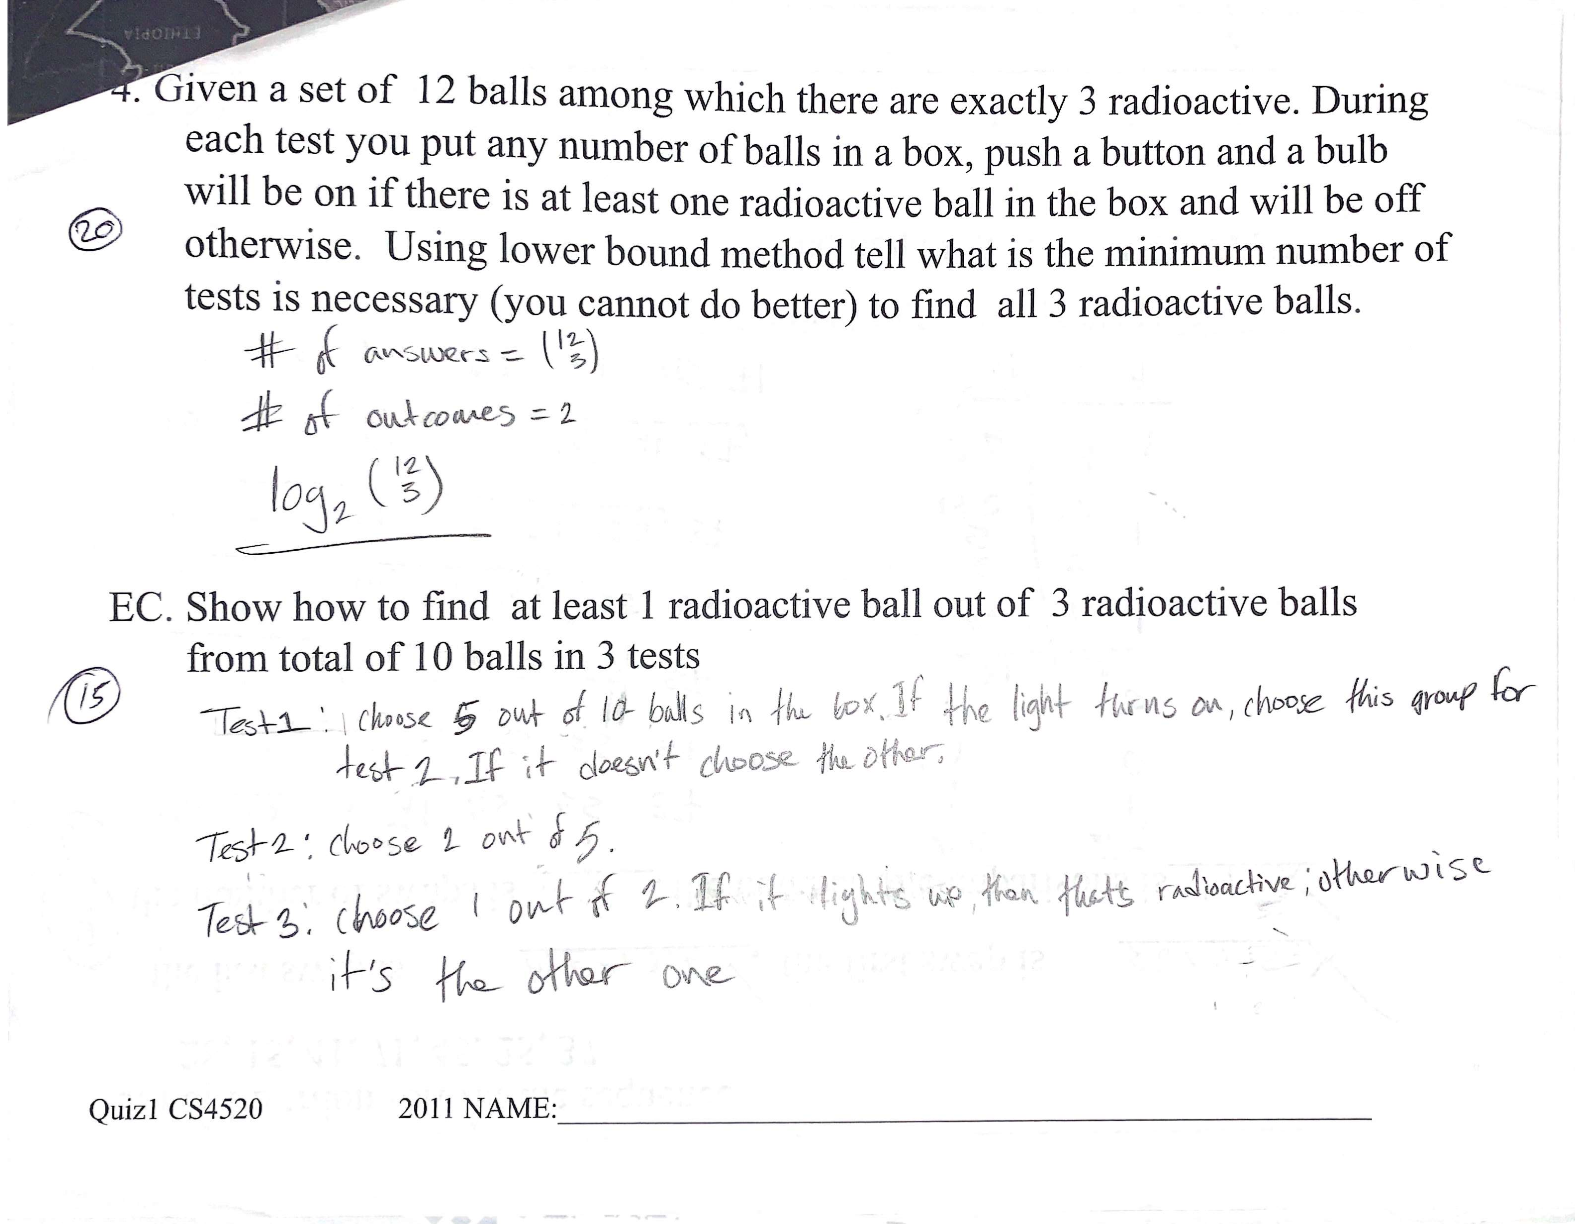 ETHIOPIA
4. Given a set of 12 balls among which there are exactly 3 radioactive. During
each test you put any number of balls in a box, push a button and a bulb
will be on if there is at least one radioactive ball in the box and will be off
20
otherwise. Using lower bound method tell what is the minimum number of
tests is necessary (you cannot do better) to find all 3 radioactive balls.
# of answers = (12 3)
# of outcomes = 2
log2 (12 3)
EC. Show how to find at least 1 radioactive ball out of 3 radioactive balls
from total of 10 balls in 3 tests
15
Test 1: choose 5 out of 10 balls in the box. If the light turns on, choose this group for
test 2, If it doesn't choose the other.
Test 2: choose 2 out of 5.
Test 3: choose 1 out of 2. If it lights up, then thats radioactive; otherwise
it's the other one
Quiz1 CS4520 2011 NAME: